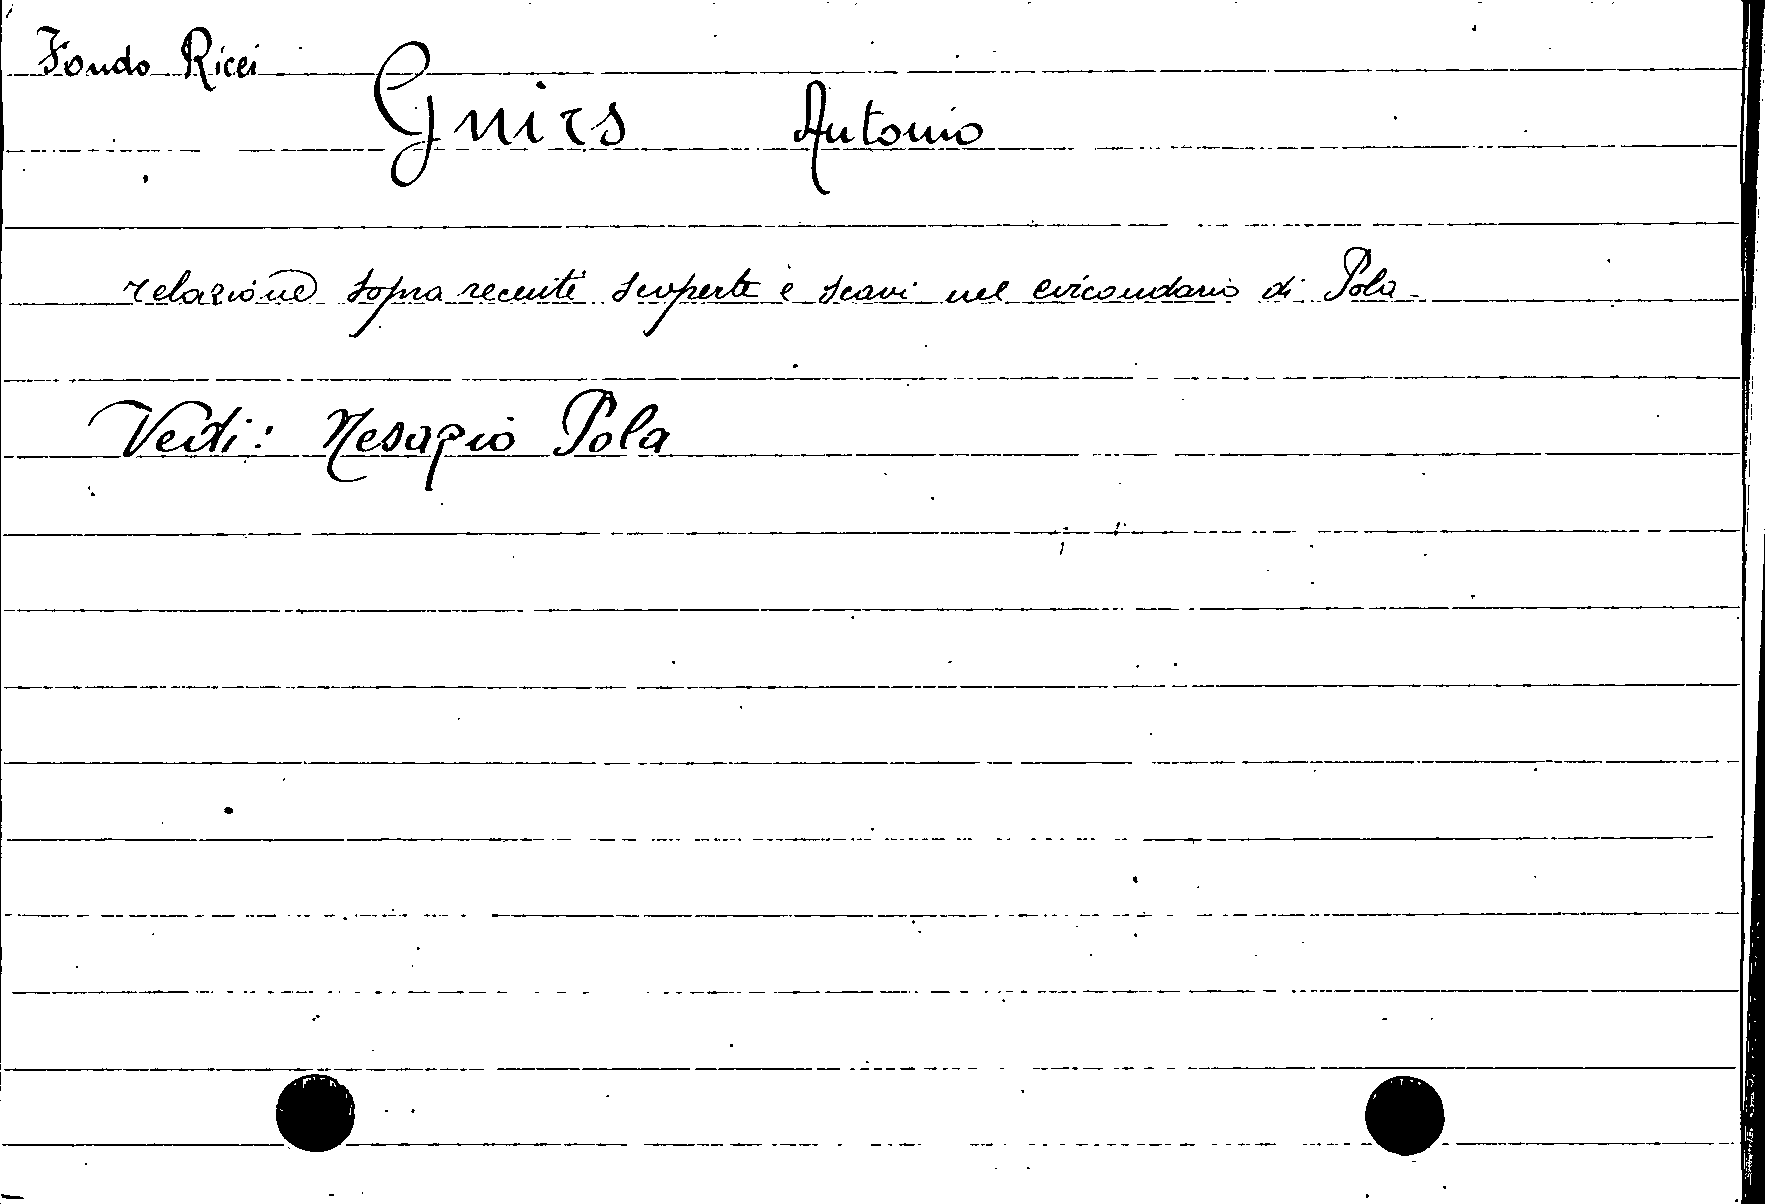 Fondo Ricci
Gnirs Antonio
relazione sopra recenti scoperte e scavi nel circondario di Pola
Vedi: Nesazio Pola